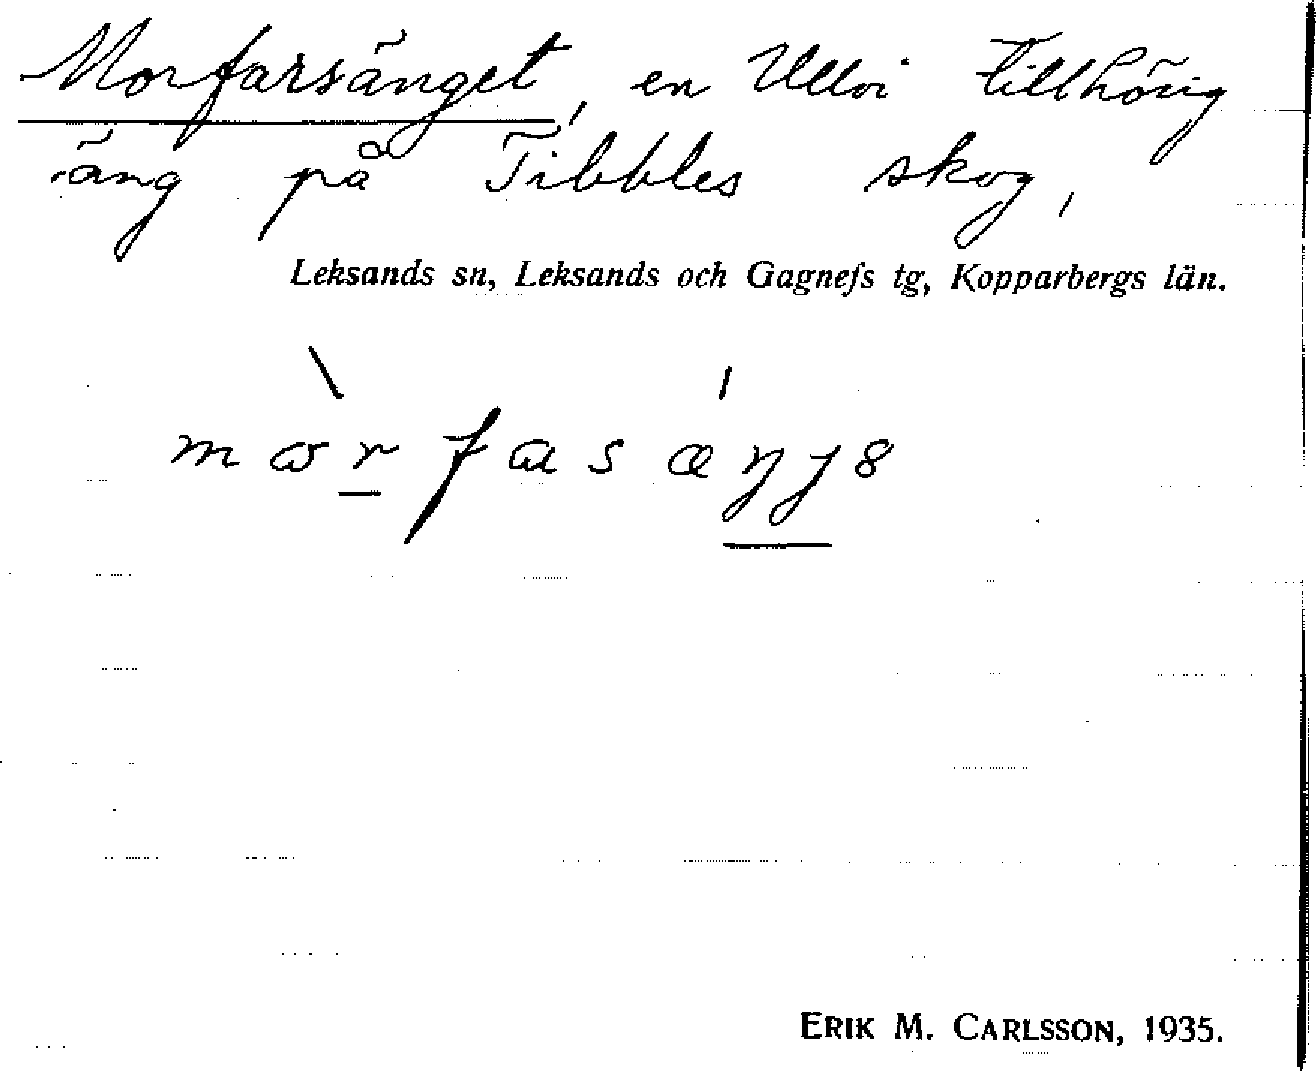 Morfarsänget, en Ullvi tillhörig
äng på Tibbles skog,
Leksands sn, Leksands och Gagnefs tg, Kopparbergs län.
ERIK M. CARLSSON, 1935.